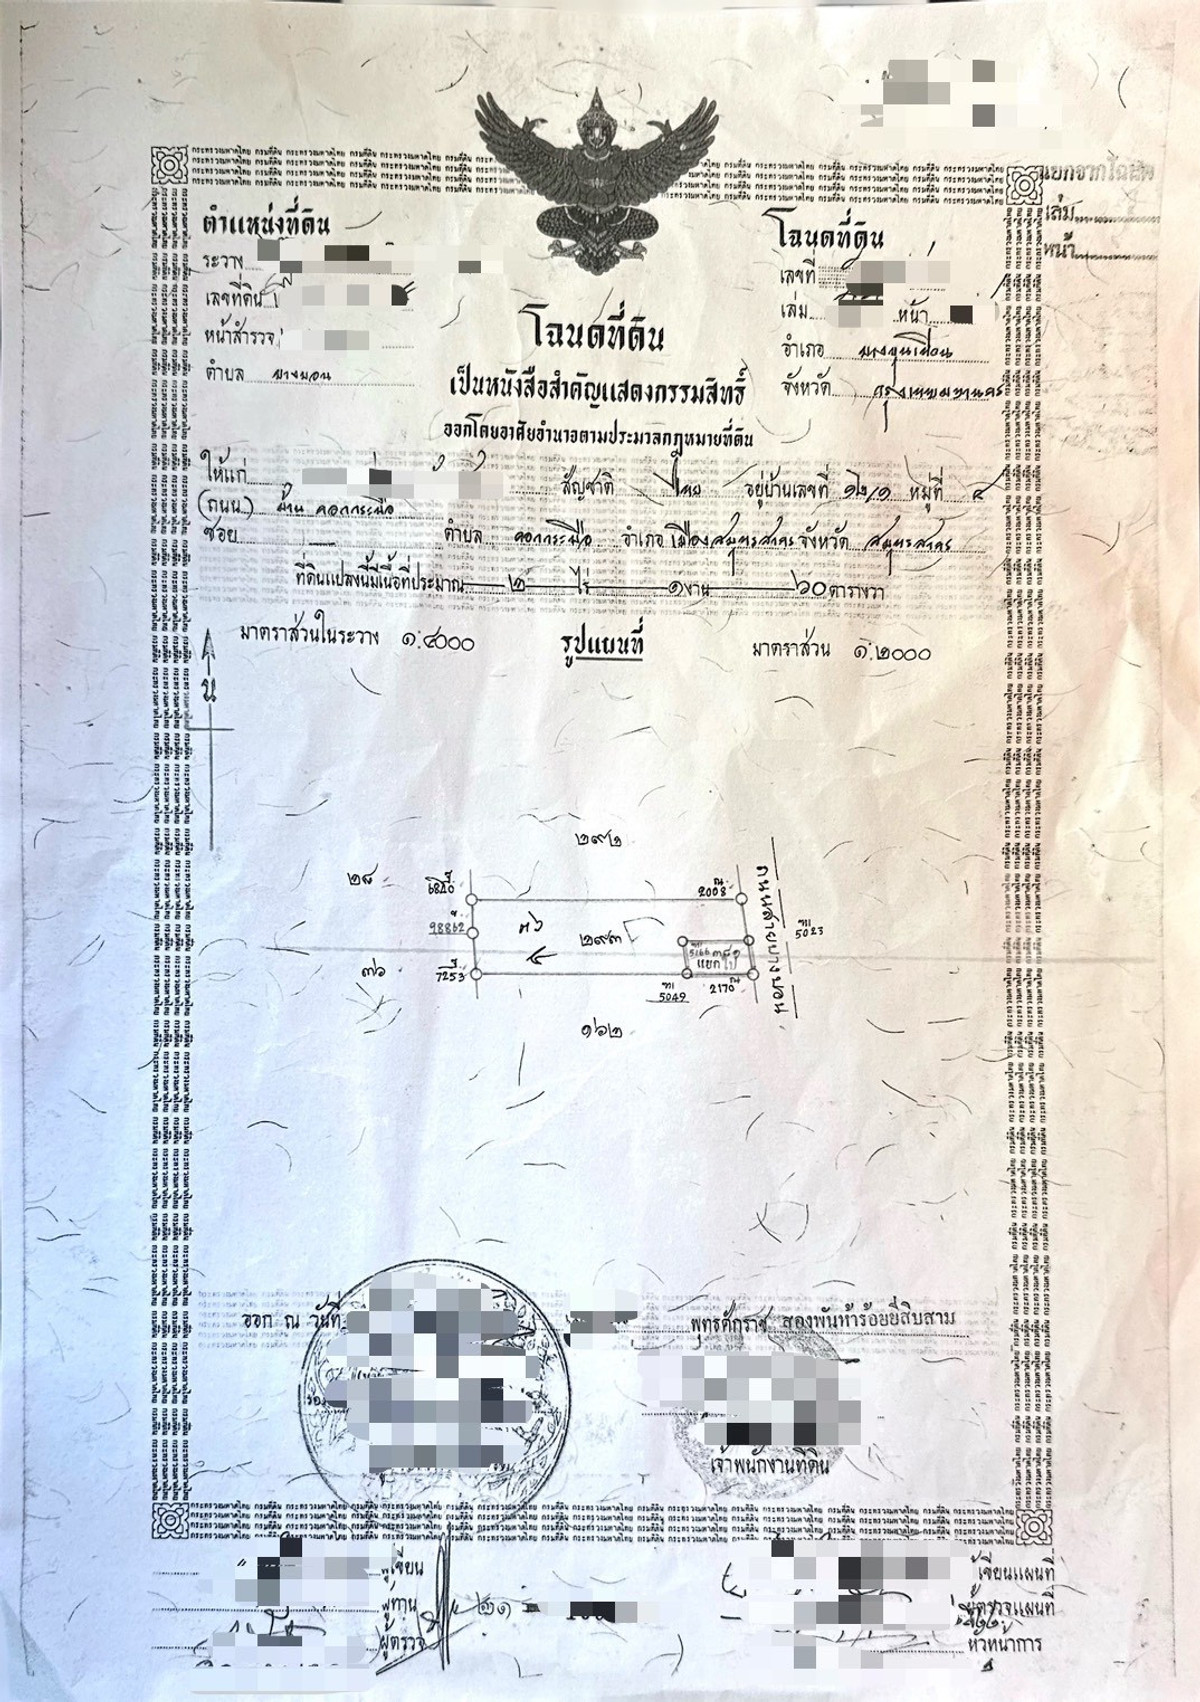 แยกจากโฉนด
เล่ม
หน้า
ตำแหน่งที่ดิน
ระวาง
เลขที่ดิน
หน้าสำรวจ
ตำบล บางบอน
โฉนดที่ดิน
เลขที่
เล่ม หน้า
อำเภอ บางขุนเทียน
จังหวัด กรุงเทพมหานคร
โฉนดที่ดิน
เป็นหนังสือสำคัญแสดงกรรมสิทธิ์
ออกโดยอาศัยอำนาจตามประมวลกฎหมายที่ดิน
ให้แก่ สัญชาติ ไทย อยู่บ้านเลขที่ หมู่ที่ ๔
(ถนน) บ้าน คอกกระบือ
ซอย — ตำบล คอกกระบือ อำเภอ เมืองสมุทรสาคร จังหวัด สมุทรสาคร
ที่ดินแปลงนี้มีเนื้อที่ประมาณ ๒ ไร่ ๑ งาน ๖๐ ตารางวา
มาตราส่วนในระวาง ๑:๔๐๐๐ รูปแผนที่ มาตราส่วน ๑:๒๐๐๐
น
๒๙๒
๒๘ 6840 2008
98862 ๓๖ ๒๙๓ 5023
๔ แยกไป
๓๖ 7253 5049 2170
ถนนสายบางบอน
๑๖๒
ออก ณ วันที่ พุทธศักราช สองพันห้าร้อยยี่สิบสาม
เจ้าพนักงานที่ดิน
ผู้เขียน ผู้เขียนแผนที่
ผู้ทาน ๒๑ ผู้ตรวจแผนที่
ผู้ตรวจ หัวหน้าการ